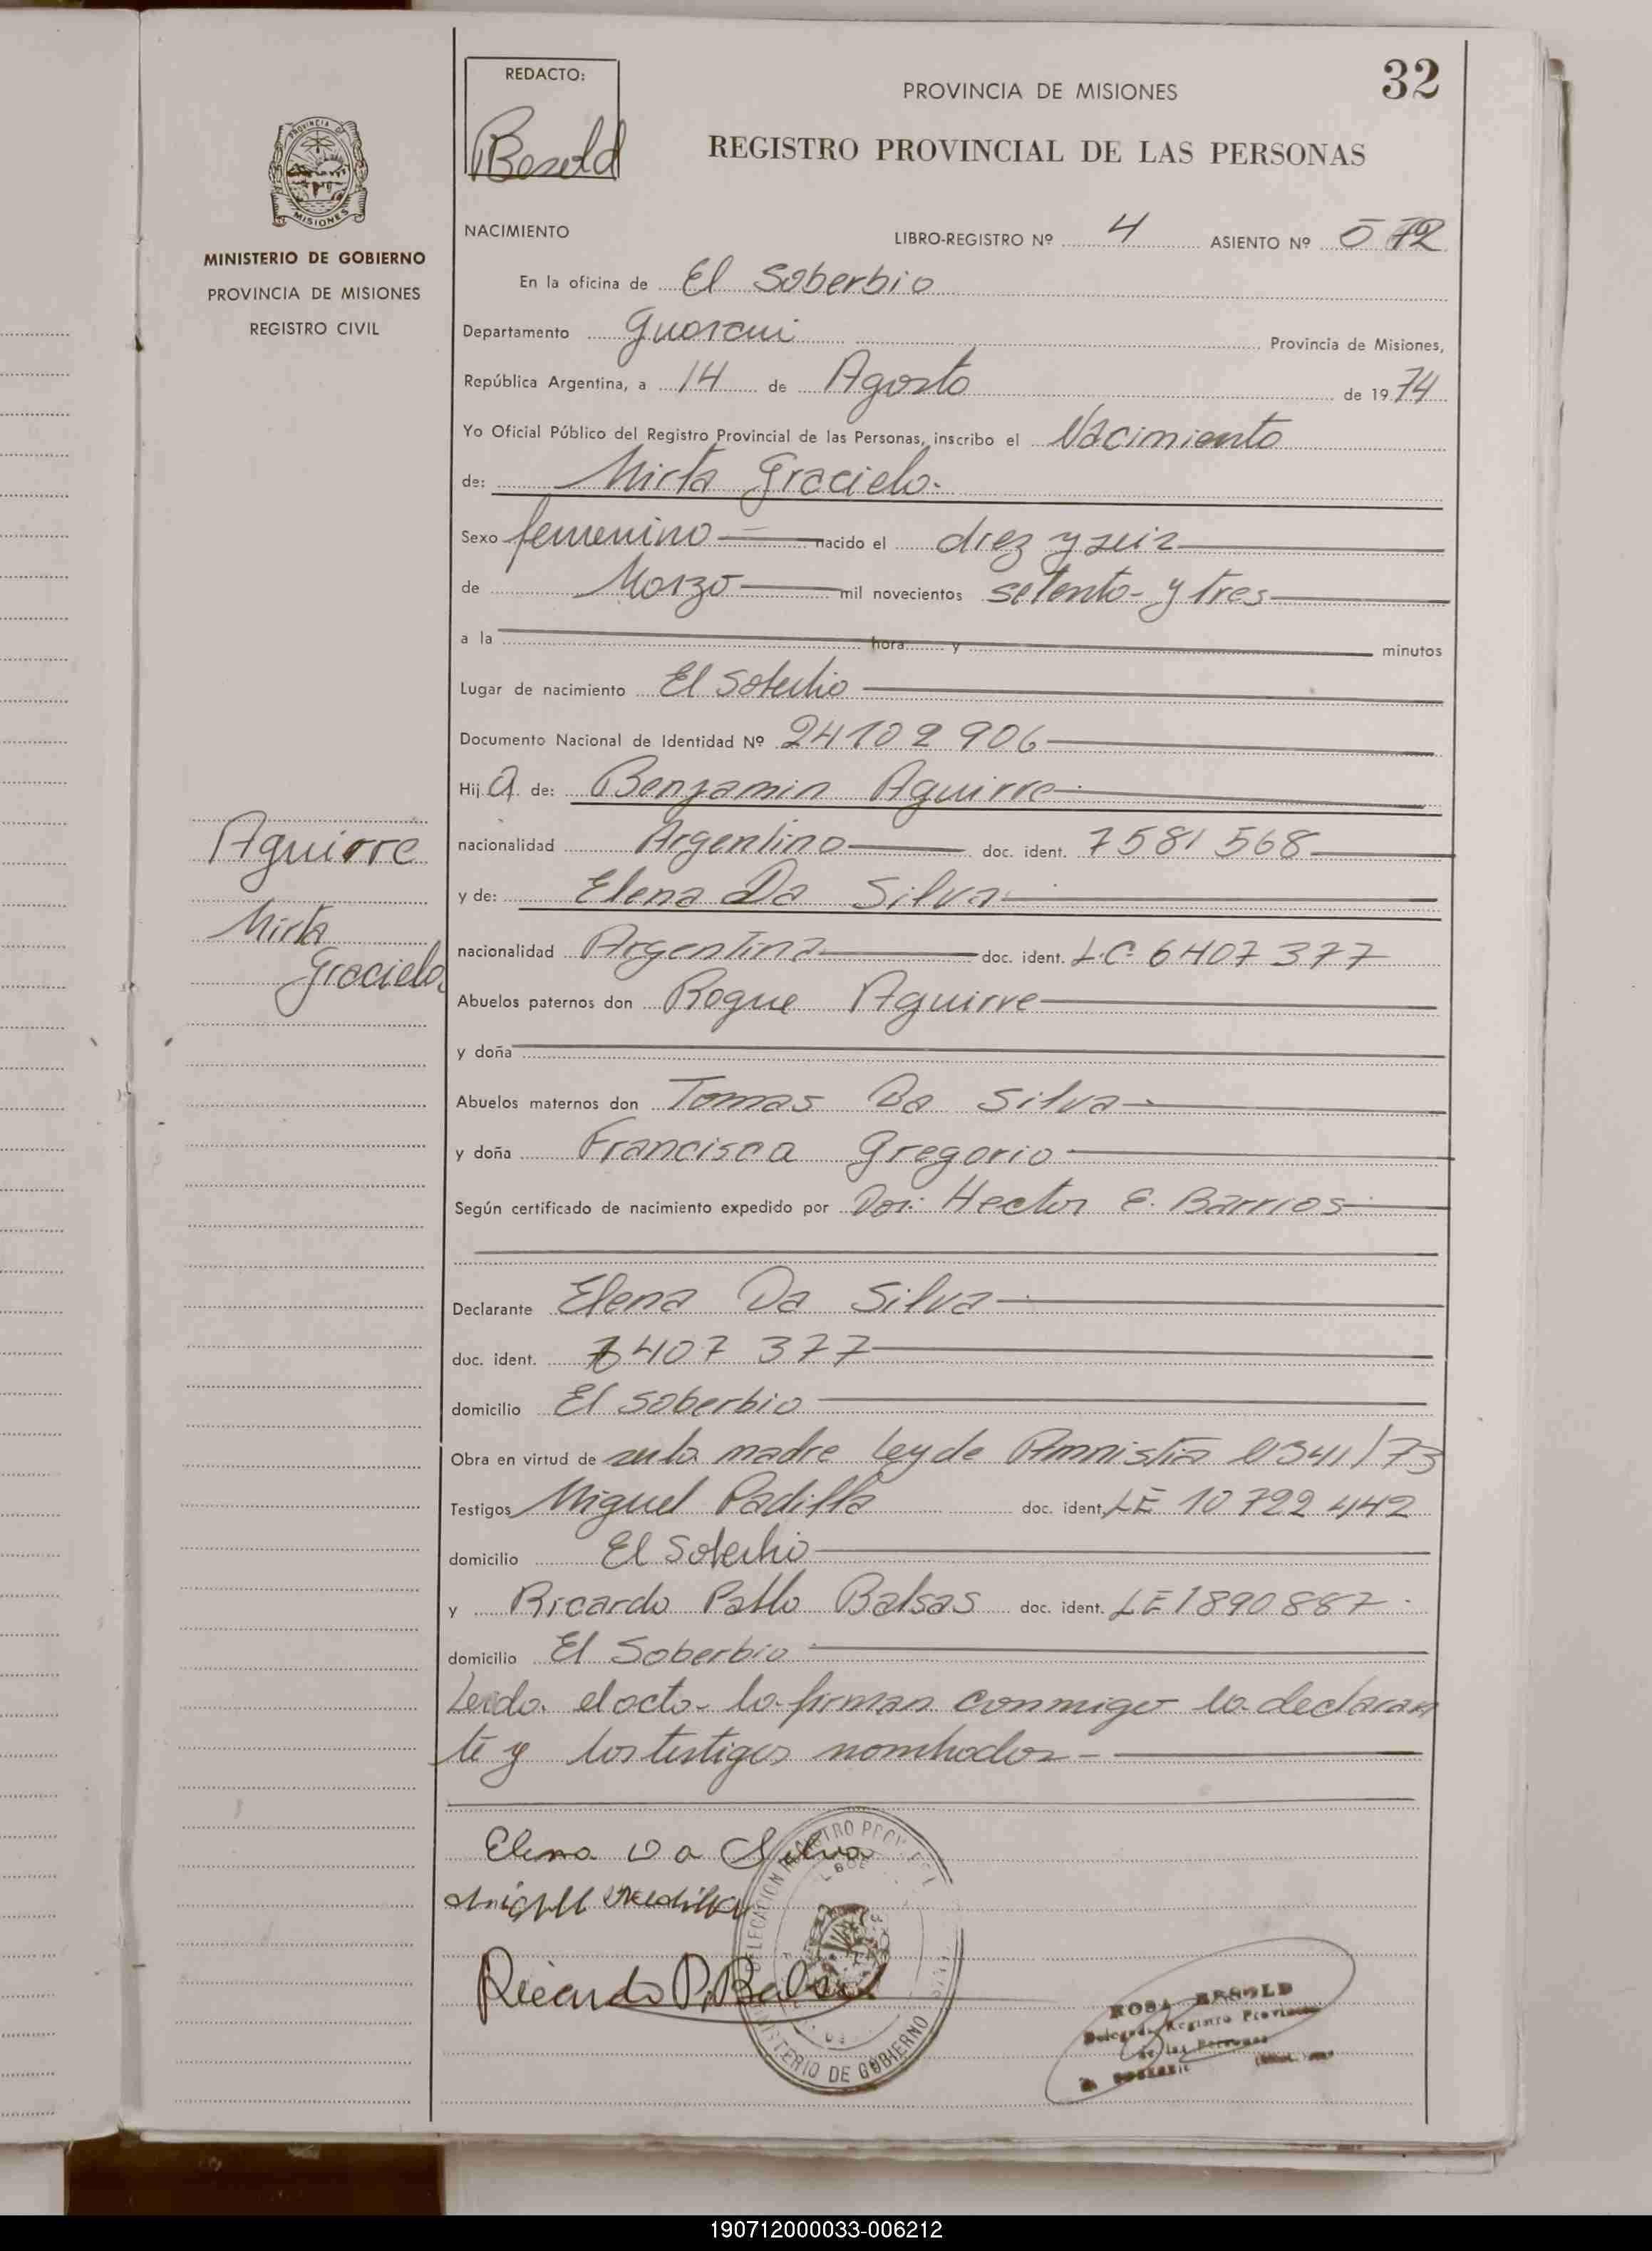 32
REDACTO:
Besold
PROVINCIA DE MISIONES
REGISTRO PROVINCIAL DE LAS PERSONAS
PROVINCIA DE
MISIONES
MINISTERIO DE GOBIERNO
PROVINCIA DE MISIONES
REGISTRO CIVIL
NACIMIENTO LIBRO-REGISTRO Nº 4 ASIENTO Nº 072
En la oficina de El Soberbio
Departamento Guarani Provincia de Misiones,
República Argentina, a 14 de Agosto de 1974
Yo Oficial Público del Registro Provincial de las Personas, inscribo el Nacimiento
de: Mirta Graciela
Sexo femenino nacido el diez y seis
de Marzo mil novecientos setenta y tres
a la hora y minutos
Lugar de nacimiento El Soberbio
Documento Nacional de Identidad Nº 24102906
Hija de: Benjamin Aguirre
nacionalidad Argentino doc. ident. 7581568
y de: Elena Da Silva
nacionalidad Argentina doc. ident. L.C. 6407377
Abuelos paternos don Roque Aguirre
y doña
Abuelos maternos don Tomas Da Silva
y doña Francisca Gregorio
Según certificado de nacimiento expedido por Dor. Hector E. Barrios
Declarante Elena Da Silva
doc. ident. 6407 377
domicilio El Soberbio
Obra en virtud de la madre Ley de Amnistia /73
Testigos Miguel Padilla doc. ident. LE 10722442
domicilio El Soberbio
y Ricardo Pablo Balsas doc. ident. LE 1890887
domicilio El Soberbio
Leida el acta la firman conmigo la declaran
te y los testigos nombrados
Aguirre
Mirta
Graciela
Elena Da Silva
Ricardo P. Balsas
MINISTERIO DE GOBIERNO
ROSA BESOLD
Registro Provincial
de las Personas
190712000033-006212